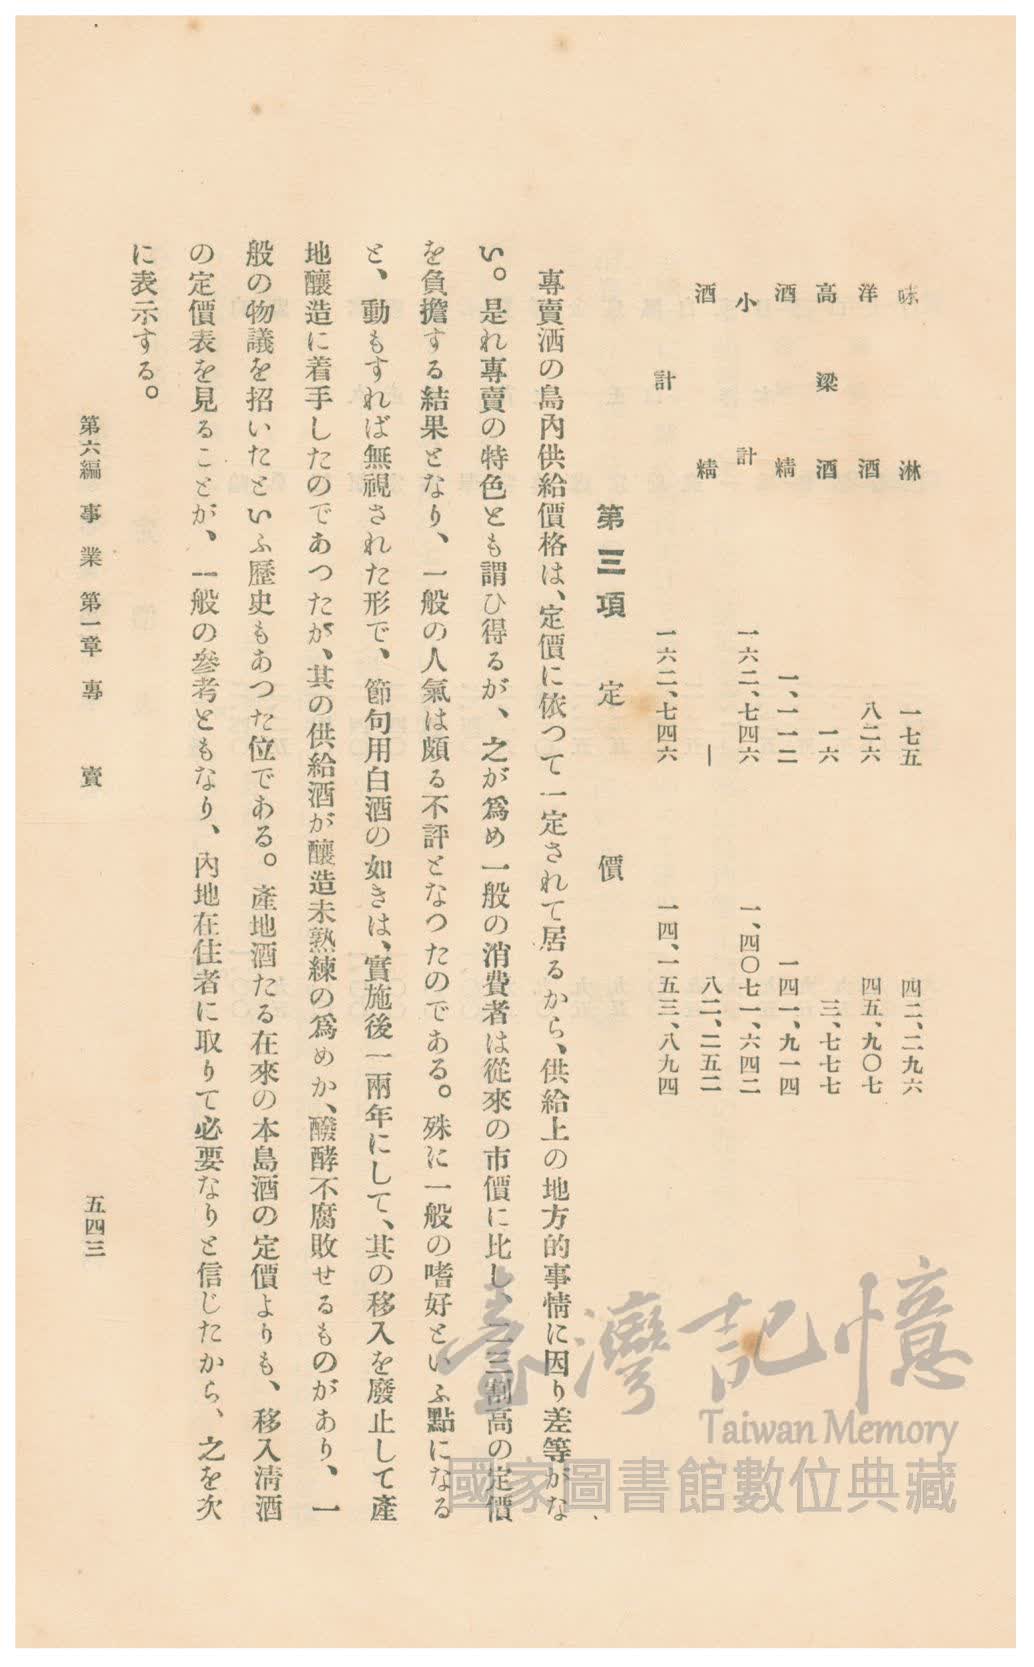 味淋 一七五 四二、二九六
洋酒 八二六 四五、九〇七
高梁酒 一六 三、七七七
酒精 一、一一二 一四一、九一四
小計 一六二、七四六 一、四〇七一、六四二
酒精 ― 八二、二五二
計 一六二、七四六 一四、一五三、八九四
第三項 定價
專賣酒の島內供給價格は、定價に依つて一定されて居るから、供給上の地方的事情に因り差等がな
い。是れ專賣の特色とも謂ひ得るが、之が爲め一般の消費者は從來の市價に比し、二三割高の定價
を負擔する結果となり、一般の人氣は頗る不評となつたのである。殊に一般の嗜好といふ點になる
と、動もすれば無視された形で、節句用白酒の如きは、實施後一兩年にして、其の移入を廢止して產
地釀造に着手したのであつたが、其の供給酒が釀造未熟練の爲めか、醱酵不腐敗せるものがあり、一
般の物議を招いたといふ歷史もあつた位である。產地酒たる在來の本島酒の定價よりも、移入淸酒
の定價表を見ることが、一般の參考ともなり、內地在住者に取りて必要なりと信じたから、之を次
に表示する。
第六編 事業 第一章 專賣
五四三
臺灣記憶
Taiwan Memory
國家圖書館數位典藏